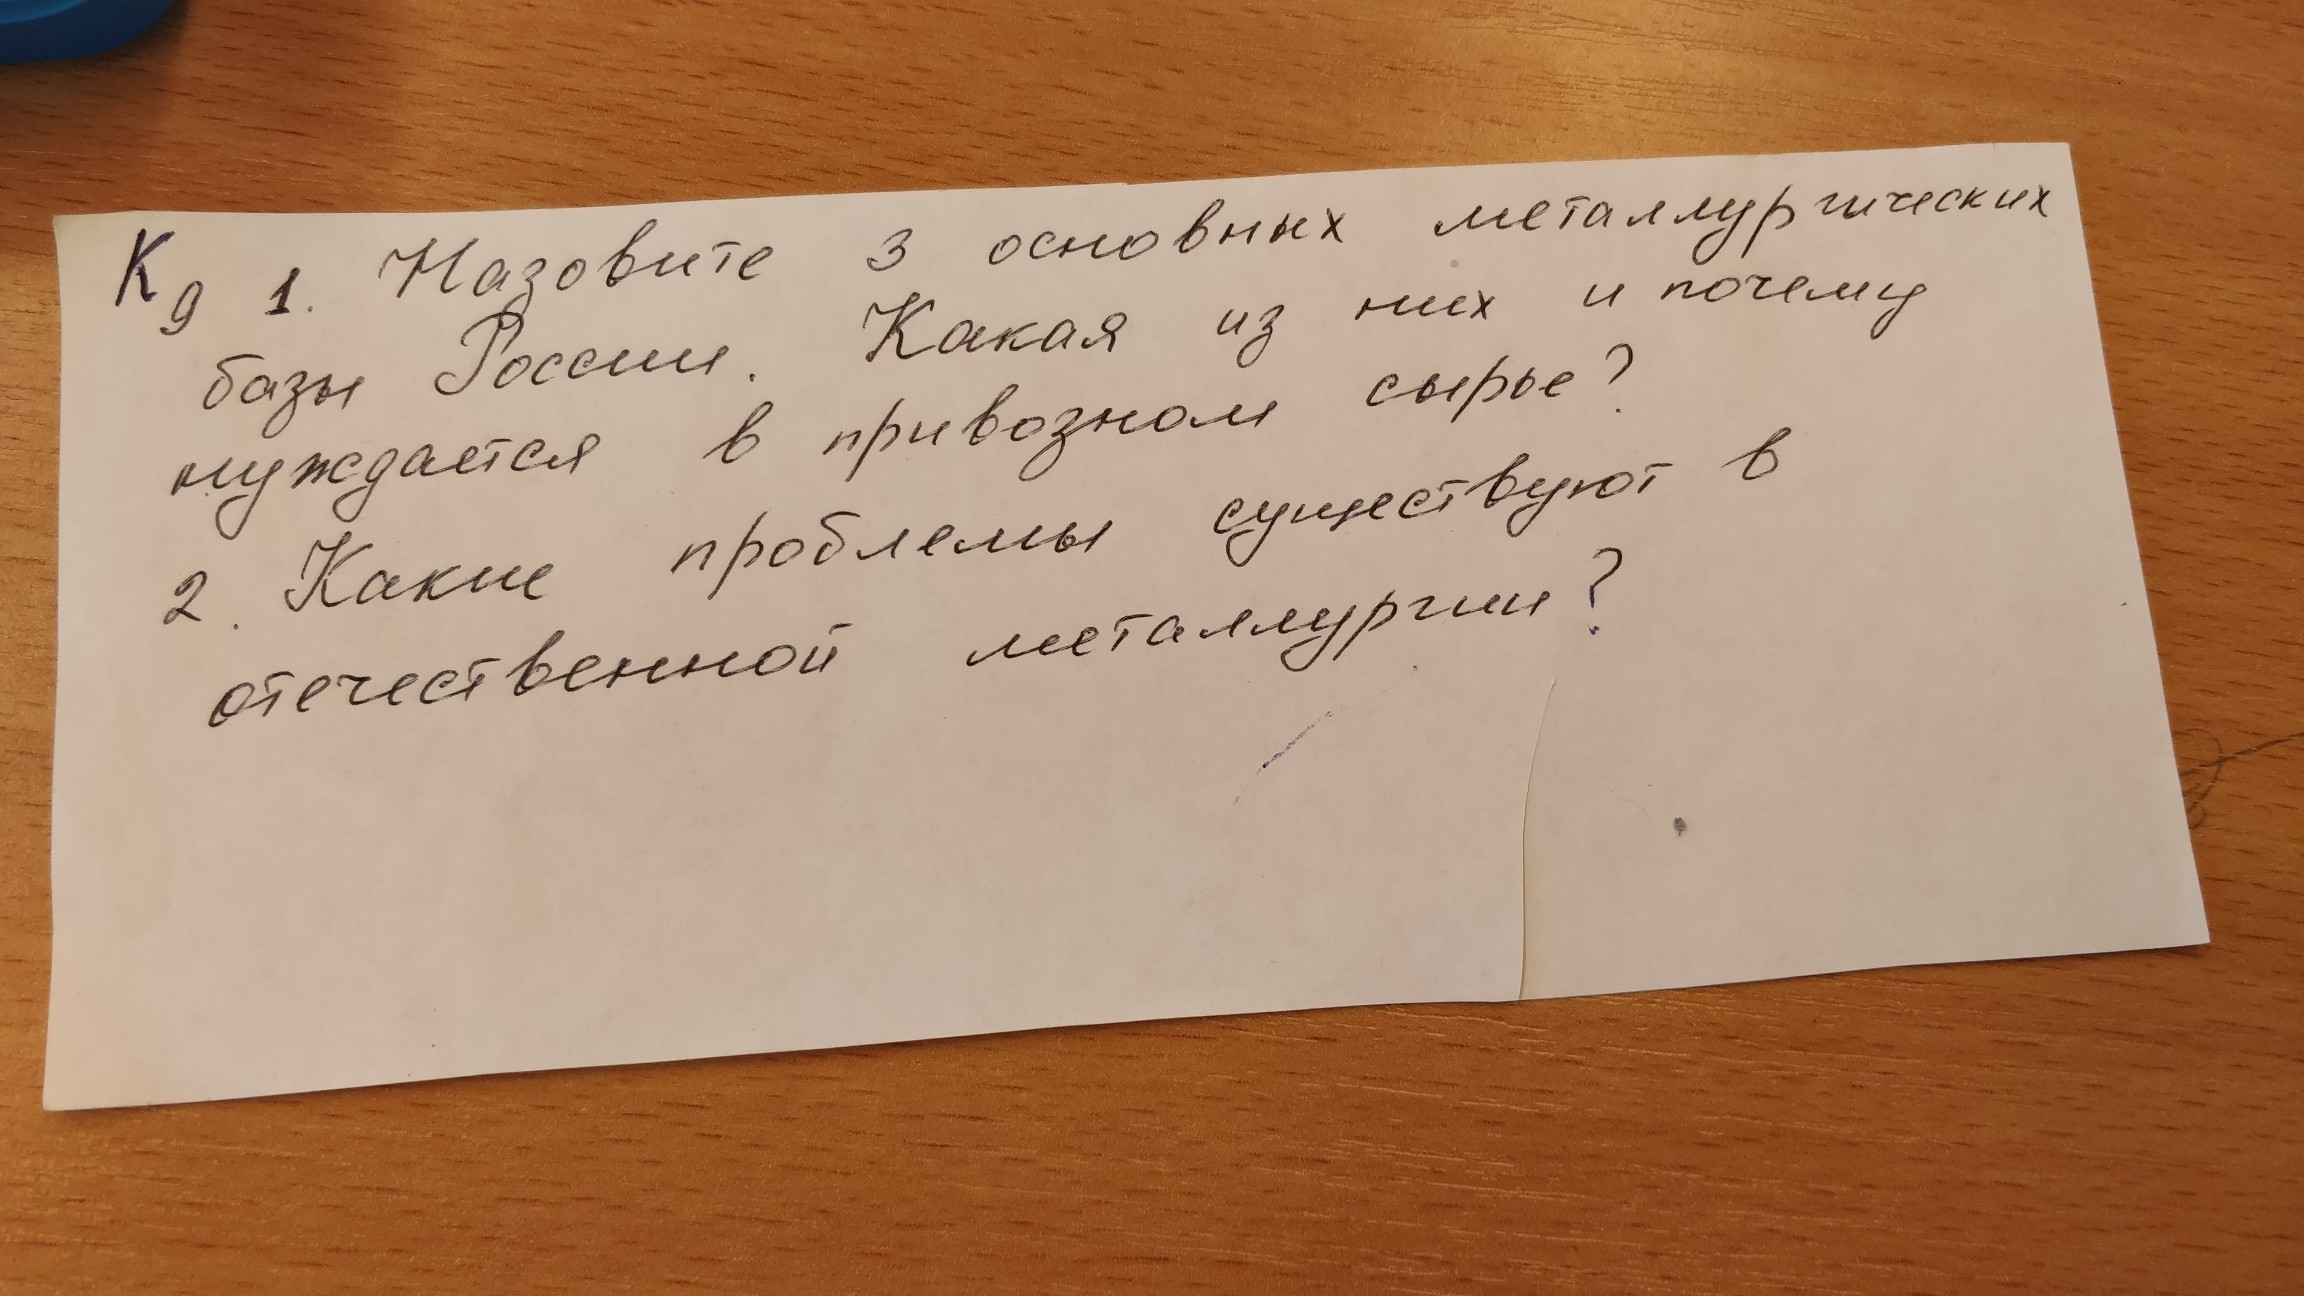 К9 1. Назовите 3 основных металлургических
базы России. Какая из них и почему
нуждается в привозном сырье?
2. Какие проблемы существуют в
отечественной металлургии?